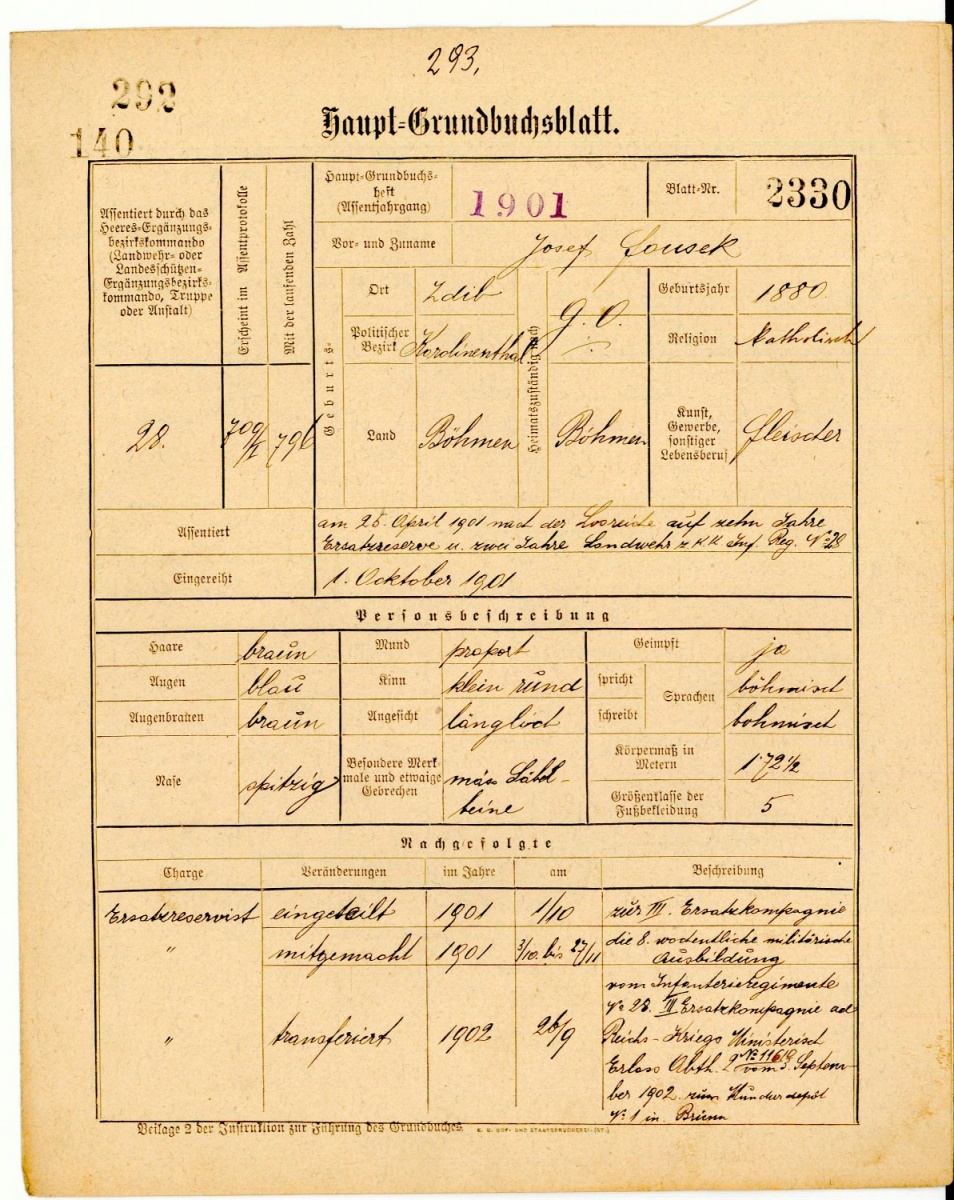 293,
292
140
Haupt-Grundbuchsblatt.
Assentiert durch das
Heeres-Ergänzungs-
bezirkskommando
(Landwehr- oder
Landesschützen-
Ergänzungsbezirks-
kommando, Truppe
oder Anstalt)
Erscheint im Assentprotokolle
Mit der laufenden Zahl
Haupt-Grundbuchs-
heft
(Assentjahrgang)
1901
Blatt-Nr.
2330
Vor- und Zuname
Josef
Geburts-
Ort
Zdib
Heimatszuständig nach
g. O.
Geburtsjahr
1880
Politischer
Bezirk
Karolinenthal
Religion
katholisch
28.
796
Land
Böhmen
Böhmen
Kunst,
Gewerbe,
sonstiger
Lebensberuf
fleischer
Assentiert
am 25. April 1901 nach der Losreihe auf zehn Jahre
Ersatzreserve u. zwei Jahre Landwehr z. k. k. Inf. Reg. No 28
Eingereiht
1. Ocktober 1901
Personsbeschreibung
Haare
braun
Mund
proport
Geimpft
ja
Augen
blau
Kinn
klein rund
spricht
Sprachen
böhmisch
Augenbrauen
braun
Angesicht
länglich
schreibt
bohmisch
Nase
spitzig
Besondere Merk-
male und etwaige
Gebrechen
mäs. Säbel-
beine
Körpermaß in
Metern
1·72 1/2
Größenklasse der
Fußbekleidung
5
Nachgefolgte
Charge
Veränderungen
im Jahre
am
Beschreibung
Ersatzreservist eingeteilt 1901 1/10 zur III. Ersatzkompagnie
" mitgemacht 1901 3/10 bis 27/11 die 8. wochentliche militärische
Ausbildung
" transferiert 1902 26/9 vom Infanterieregimente
No 28. III Ersatzkompagnie ad
Reichs-Kriegs Ministerisch
Erlass Abth. 2 No 11618 vom 3. Septem-
ber 1902 zum
No 1 in Brünn
Beilage 2 der Instruktion zur Führung des Grundbuches.
K. K. HOF- UND STAATSDRUCKEREI.